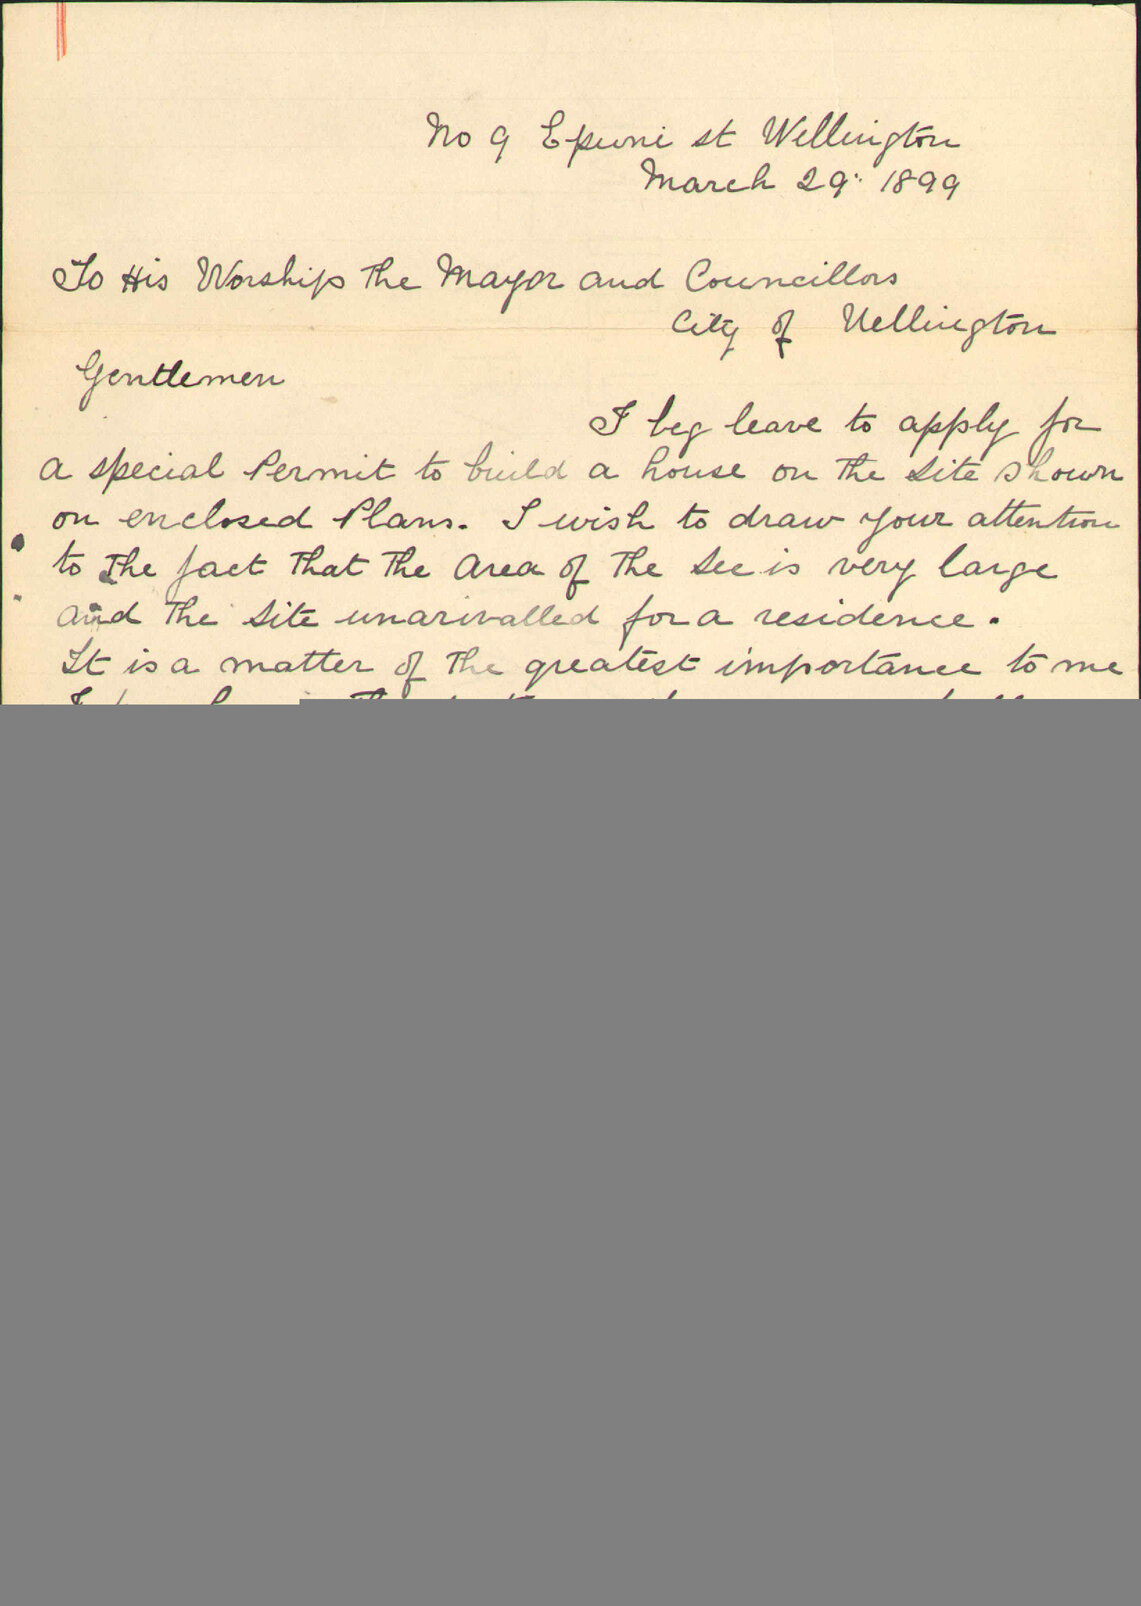 No 9 Epuni st Wellington
March 29. 1899
To His Worship The Mayor and Councillors
City of Wellington
Gentlemen
I beg leave to apply for
a special Permit to build a house on The Site Shown
on enclosed Plans. I wish to draw your attention
to The fact That The Area of The Sec is very large
and The Site unarivalled for a residence.
It is a matter of The greatest importance to me